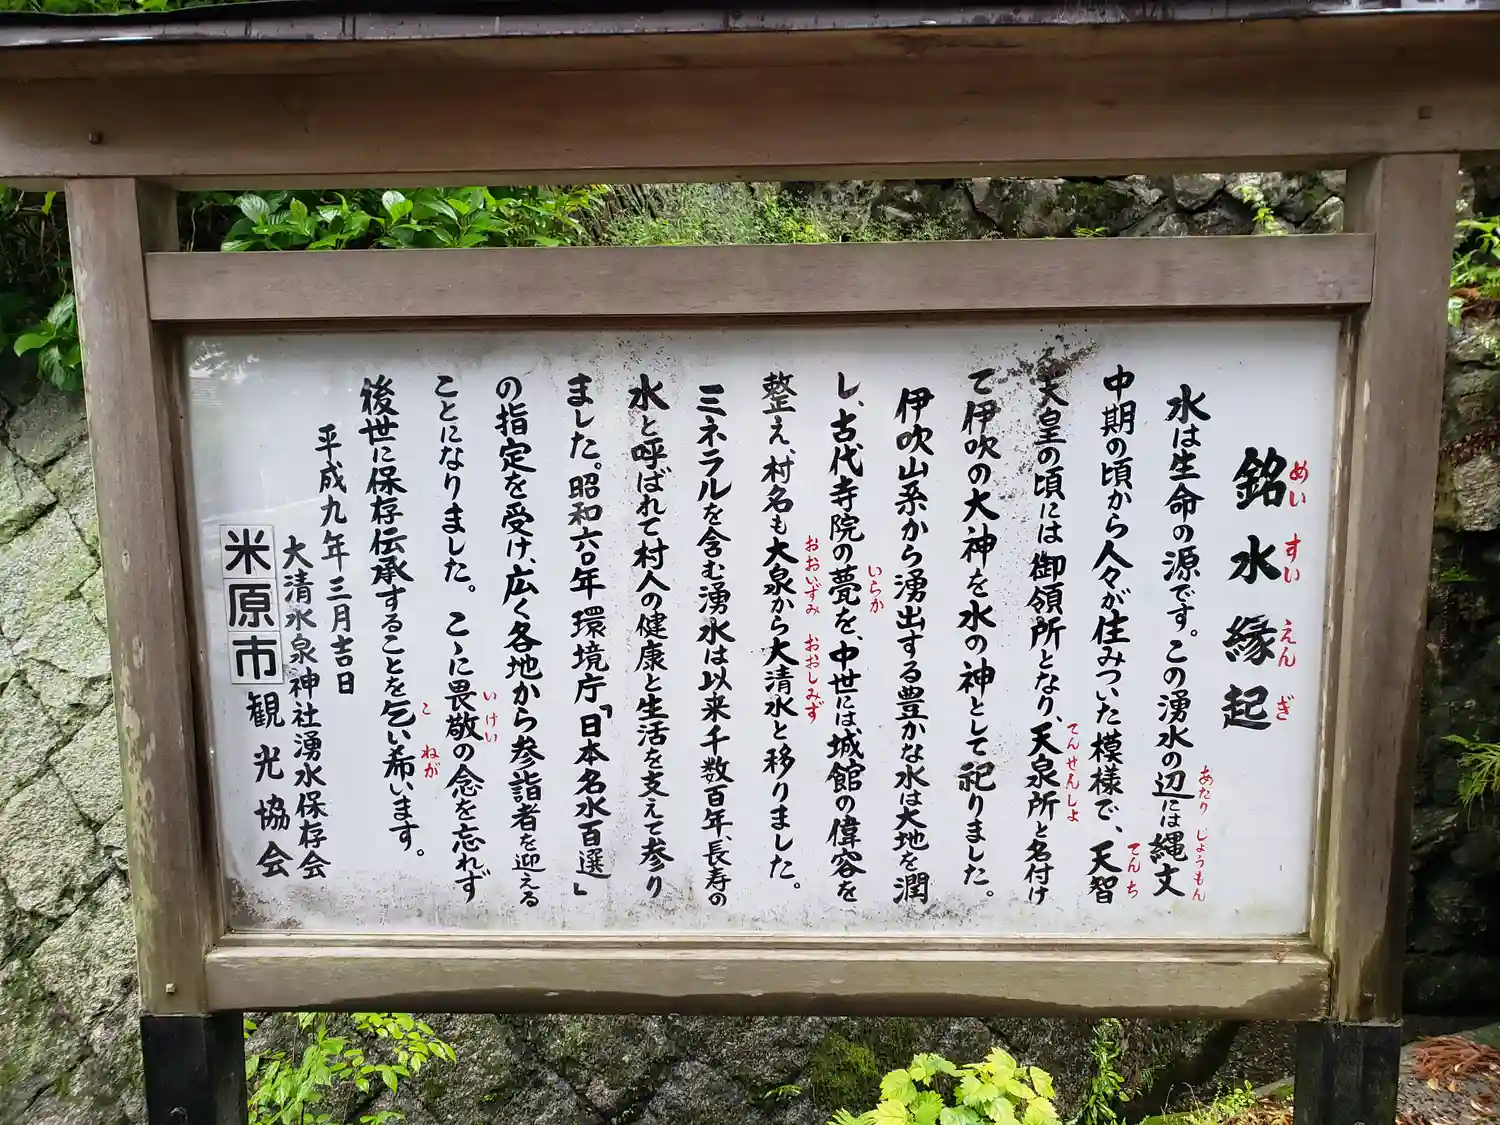 銘水縁起
めいすいえんぎ
水は生命の源です。この湧水の辺には縄文
あたり じょうもん
中期の頃から人々が住みついた模様で、天智
てんち
天皇の頃には御領所となり、天泉所と名付け
てんせんしよ
て伊吹の大神を水の神として祀りました。
伊吹山系から湧出する豊かな水は大地を潤
し、古代寺院の甍を、中世には城館の偉容を
いらか
整え、村名も大泉から大清水と移りました。
おおいずみ おおしみず
ミネラルを含む湧水は以来千数百年、長寿の
水と呼ばれて村人の健康と生活を支えて参り
ました。昭和六〇年環境庁「日本名水百選」
の指定を受け、広く各地から参詣者を迎える
ことになりました。こゝに畏敬の念を忘れず
いけい
後世に保存伝承することを乞い希います。
こ ねが
平成九年三月吉日
大清水泉神社湧水保存会
米原市観光協会